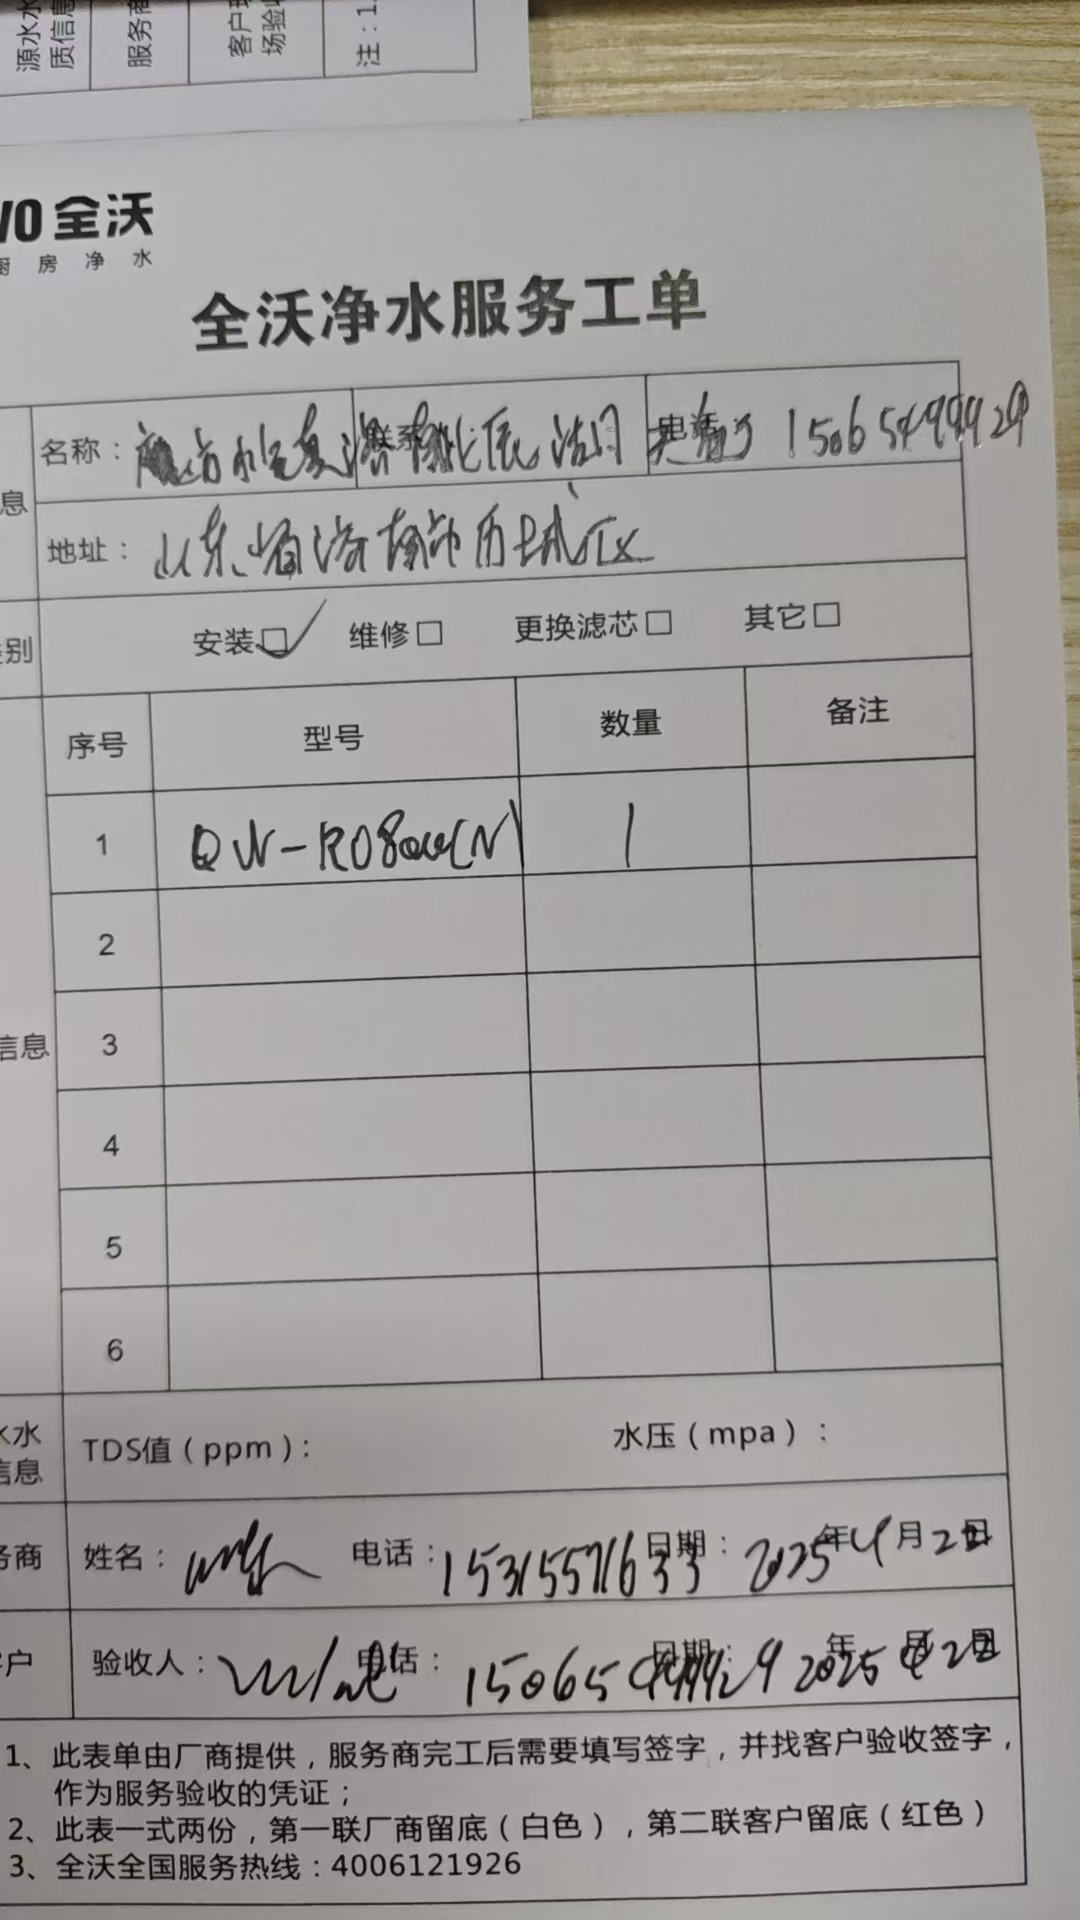 源水水
质信息
服务商
客户现
场验收
注：1
VO 全沃
厨房净水
全沃净水服务工单
息
名称： 联系 电话 15065499929
地址：山东省济南市历城区
类别
安装☑ 维修□ 更换滤芯□ 其它□
序号 型号 数量 备注
1 QW-RO800(N) 1
2
信息
3
4
5
6
水水
信息
TDS值（ppm）： 水压（mpa）：
务商
姓名： 电话：15315571633 日期：2025年4月22日
客户
验收人： 电话：15065499929 日期：2025年4月22日
1、此表单由厂商提供，服务商完工后需要填写签字，并找客户验收签字，
作为服务验收的凭证；
2、此表一式两份，第一联厂商留底（白色），第二联客户留底（红色）
3、全沃全国服务热线：4006121926